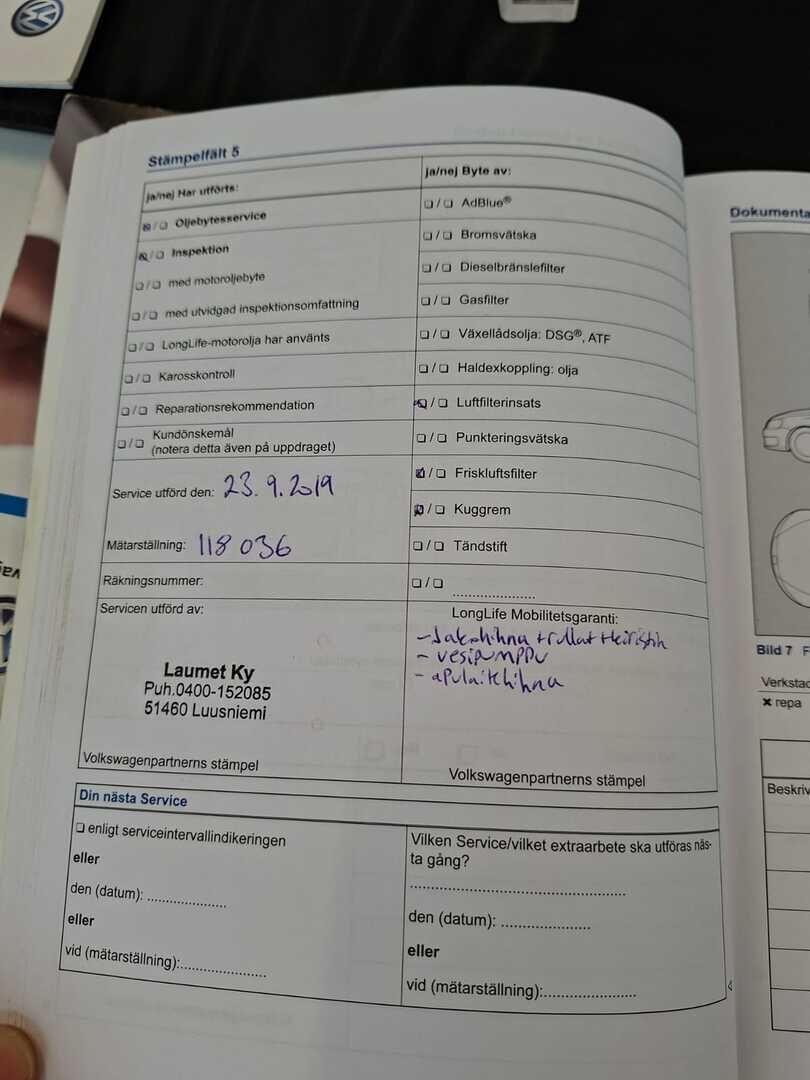 Stämpelfält 5
ja/nej Har utförts:
☒/☐ Oljebytesservice
☒/☐ Inspektion
☐/☐ med motoroljebyte
☐/☐ med utvidgad inspektionsomfattning
☐/☐ LongLife-motorolja har använts
☐/☐ Karosskontroll
☐/☐ Reparationsrekommendation
☐/☐ Kundönskemål
(notera detta även på uppdraget)
Service utförd den: 23.9.2019
Mätarställning: 118 036
Räkningsnummer:
Servicen utförd av:
Laumet Ky
Puh.0400-152085
51460 Luusniemi
Volkswagenpartnerns stämpel
ja/nej Byte av:
☐/☐ AdBlue®
☐/☐ Bromsvätska
☐/☐ Dieselbränslefilter
☐/☐ Gasfilter
☐/☐ Växellådsolja: DSG®, ATF
☐/☐ Haldexkoppling: olja
☒/☐ Luftfilterinsats
☐/☐ Punkteringsvätska
☒/☐ Friskluftsfilter
☒/☐ Kuggrem
☐/☐ Tändstift
☐/☐ ....................
LongLife Mobilitetsgaranti:
- Jakohihna + rullat + kiristin
- vesipumppu
- apulaitehihna
Volkswagenpartnerns stämpel
Din nästa Service
☐ enligt serviceintervallindikeringen
eller
den (datum): ....................
eller
vid (mätarställning):....................
Vilken Service/vilket extraarbete ska utföras näs-
ta gång?
..................................................
den (datum): ....................
eller
vid (mätarställning):....................
Dokumenta
Bild 7 F
Verkstad
✖ repa
Beskriv